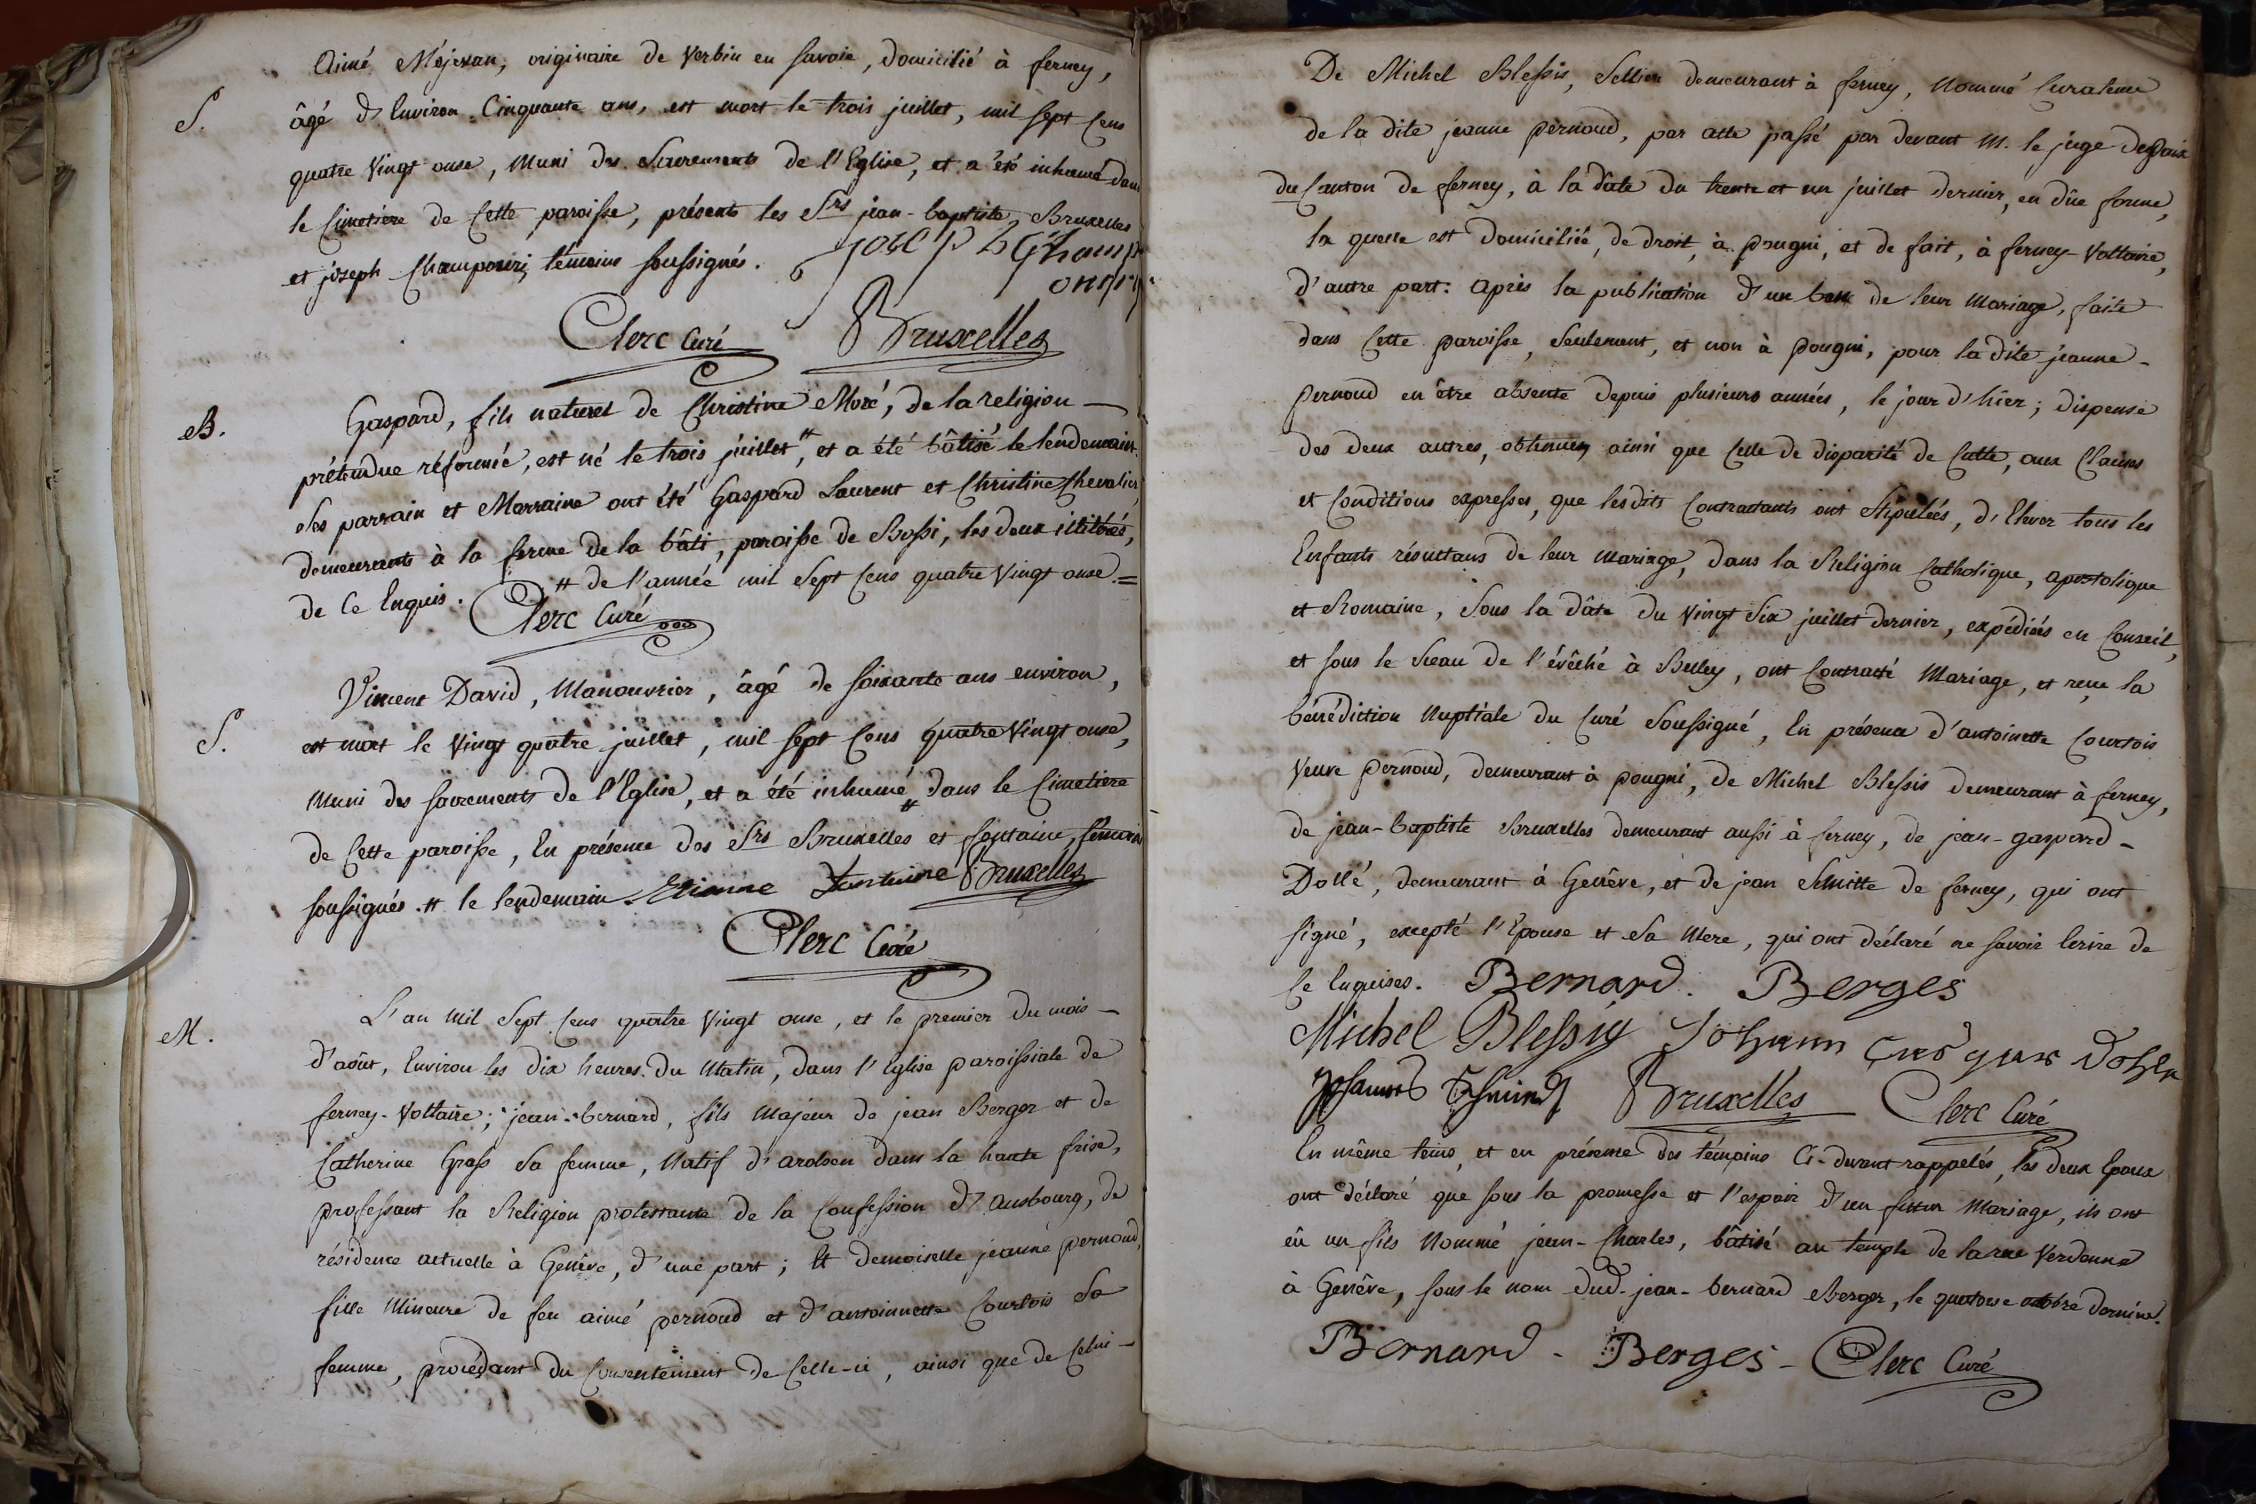 Aimé Méjevan, originaire de Verbin en Savoie, domicilié à ferney,
S. âgé d'Environ Cinquante ans, est mort le trois juillet, mil sept Cens
quatre Vingt onse, Muni des Sacrements de l'Eglise, et a été inhumé dans
le Cimetiere de Cette paroisse, présents les Srs jean-baptiste Bruxelles
et joseph Champouri, témoins soussignés.
Clerc Curé Bruxelles
B. Gaspard, fils naturel de Christine Moré, de la religion
prétendue réformée, est né le trois juillet #, et a été bâtisé le lendemain.
Ses parrain et Marraine ont été Gaspard Laurent et Christine Chevalier,
demeurants à la ferme de la bâti, paroisse de Bossi, les deux illitérés,
de Ce Enquis. # de l'année mil Sept Cens quatre Vingt onse =
Clerc Curé
Vincent David, Manouvrier, âgé de soixante ans environ,
S. est mort le Vingt quatre juillet, mil sept Cens quatre Vingt onse,
Muni des sacrements de l'Eglise, et a été inhumé # dans le Cimetiere
de Cette paroisse, En présence des Srs Bruxelles et fontaine, témoins
soussignés. # le lendemain Etienne Fontaine Bruxelles
Clerc Curé
M. L'an Mil Sept Cens quatre Vingt onse, et le premier du mois
d'août, Environ les dix heures du Matin, dans l'Eglise paroissiale de
ferney-Voltaire; jean-bernard, fils Majeur de jean Berger et de
Catherine Grass Sa femme, Natif d'arolsen dans la haute frise,
professant la Religion protestante de la Confession d'Ausbourg, de
résidence actuelle à Genêve, d'une part; Et demoiselle jeanne pernoud,
fille Mineure de feu aimé pernoud et d'antoinette Courtois Sa
femme, procédant du Consentement de Celle-ci, ainsi que de Celui-
De Michel Blessis, Sellier demeurant à ferney, Nommé Curateur
de la dite jeanne pernoud, par acte passé par devant M. le juge de paix
du Canton de ferney, à la dâte du trente et un juillet dernier, en dûe forme,
la quelle est domiciliée, de droit, à pougni, et de fait, à ferney-Voltaire,
d'autre part: après la publication d'un ban de leur Mariage, faite
dans Cette paroisse, Seulement, et non à pougni, pour la dite jeanne-
pernoud en être absente depuis plusieurs années, le jour d'hier; dispense
des deux autres, obtenues, ainsi que Celle de disparité de Culte, aux Clauses
et Conditions expresses, que lesdits Contractants ont Stipulées, d'Elever tous les
Enfants résultans de leur Mariage, dans la Religion Catholique, apostolique
et Romaine, Sous la dâte du Vingt Six juillet dernier, expédiés en Conseil,
et sous le Sceau de l'évêché à Belley, ont Contracté Mariage, et reçu la
bénédiction Nuptiale du Curé Soussigné, En présence d'antoinette Courtois
Veuve pernoud, demeurant à pougni, de Michel Blessis demeurant à ferney,
de jean-baptiste Bruxelles demeurant aussi à ferney, de jean-gaspard-
Dollé, demeurant à Genêve, et de jean Schmitte de ferney, qui ont
signé, excepté l'Epouse et Sa Mere, qui ont déclaré ne savoir Ecrire de
Ce Enquises. Bernard. Berges
Michel Blessig Johann
Johannes Bruxelles Clerc Curé
En même tems, et en présence des témoins Ci-devant rappelés, les deux Epoux
ont déclaré que sous la promesse et l'espoir d'un futur Mariage, ils ont
eû un fils Nommé jean-Charles, bâtisé au temple de la rue Verdenne
à Genêve, sous le nom dud. jean-bernard Berger, le quatorse octobre dernier.
Bernard - Berges - Clerc Curé